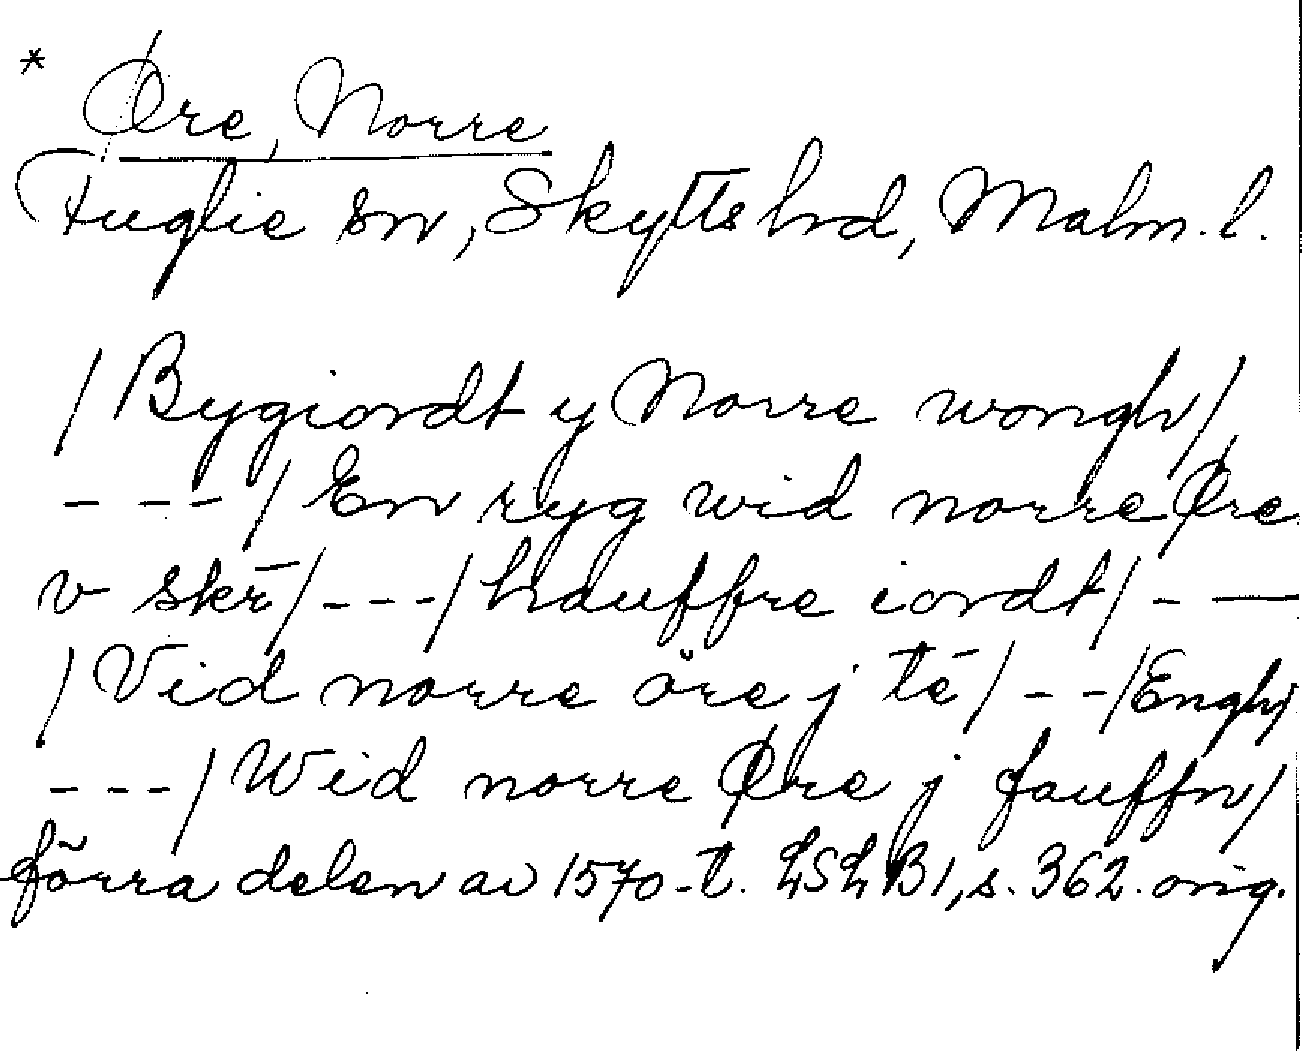 * Øre, Norre
Fuglie sn, Skytts hd, Malm. l.
/Bygiordt y Norre wongh/
---/En ryg wid norre Øre
v skr̄/---/hauffre iordt/-—
/Vid norre öre j tē/--/Engh/
---/Wid norre Øre j fauffn/
förra delen av 1570-t. LSL B1, s. 362. orig.